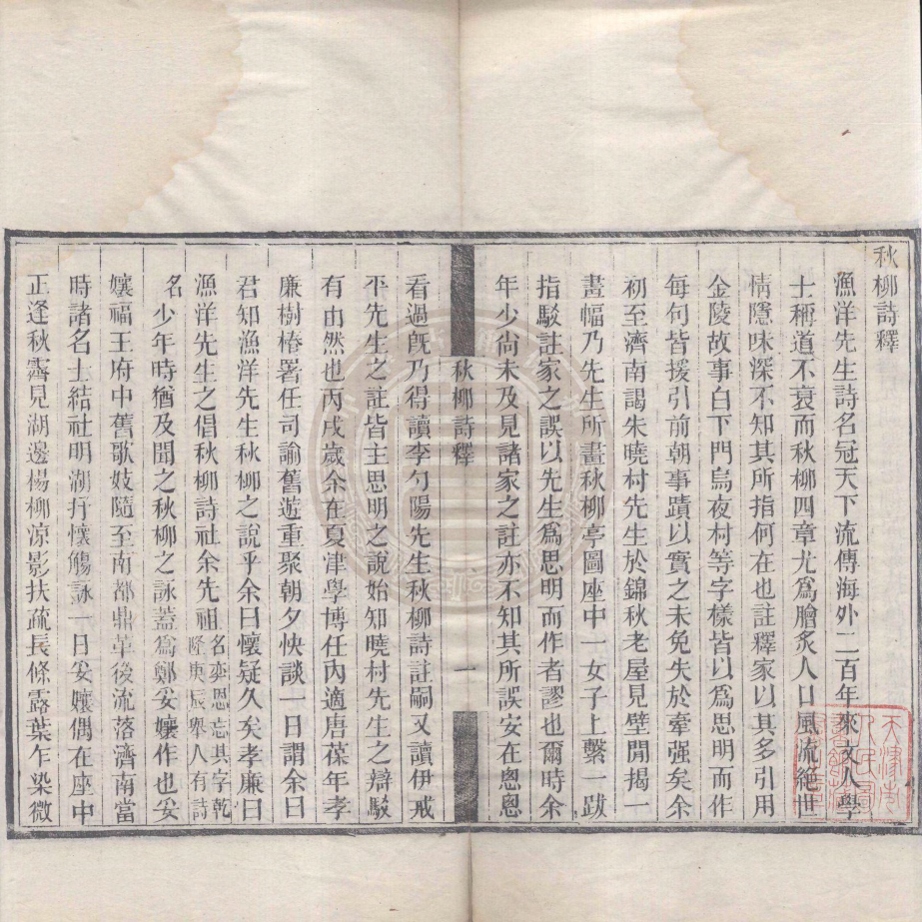 秋柳詩釋
漁洋先生詩名冠天下流傳海外二百年來文人學
士稱道不衰而秋柳四章尤爲膾炙人口風流絶世
情隱味深不知其所指何在也註釋家以其多引用
金陵故事白下門烏夜村等字樣皆以爲思明而作
每句皆援引前朝事蹟以實之未免失於牽强矣余
初至濟南謁朱曉村先生於錦秋老屋見壁閒揭一
畫幅乃先生所畫秋柳亭圖座中一女子上繫一跋
指駁註家之誤以先生爲思明而作者謬也爾時余
年少尚未及見諸家之註亦不知其所誤安在悤悤
秋柳詩釋
一
看過旣乃得讀李勺陽先生秋柳詩註嗣又讀伊戒
平先生之註皆主思明之說始知曉村先生之辯駁
有由然也丙戌歲余在夏津學博任內適唐葆年孝
廉樹椿署任司諭舊遊重聚朝夕快談一日謂余曰
君知漁洋先生秋柳之說乎余曰懷疑久矣孝廉曰
漁洋先生之倡秋柳詩社余先祖名奕思忘其字乾隆庚辰舉人有詩
名少年時猶及聞之秋柳之詠蓋爲鄭妥孃作也妥
孃福王府中舊歌妓隨至南都鼎革後流落濟南當
時諸名士結社明湖抒懷觴詠一日妥孃偶在座中
正逢秋霽見湖邊楊柳凉影扶疏長條露葉乍染微